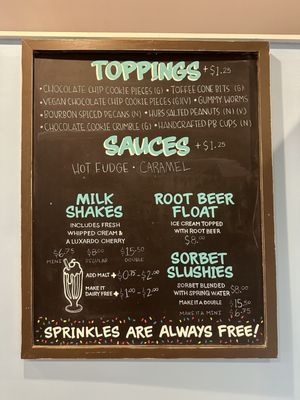 TOPPINGS +$1.25
• CHOCOLATE CHIP COOKIE PIECES (G) • TOFFEE CONE BITS (G)
• VEGAN CHOCOLATE CHIP COOKIE PIECES (G)(V) • GUMMY WORMS
• BOURBON SPICED PECANS (N) • HUBS SALTED PEANUTS (N) (V)
• CHOCOLATE COOKIE CRUMBLE (G) • HANDCRAFTED PB CUPS (N)
SAUCES +$1.25
HOT FUDGE • CARAMEL
MILK
SHAKES
INCLUDES FRESH
WHIPPED CREAM &
A LUXARDO CHERRY
$6.75 $8.00 $15.50
MINI REGULAR DOUBLE
ADD MALT +$0.75 - $2.00
MAKE IT
DAIRY FREE +$1.00 - $2.00
ROOT BEER
FLOAT
ICE CREAM TOPPED
WITH ROOT BEER
$8.00
SORBET
SLUSHIES
SORBET BLENDED
WITH SPRING WATER $8.00
MAKE IT A DOUBLE $15.50
MAKE IT A MINI $6.75
SPRINKLES ARE ALWAYS FREE!